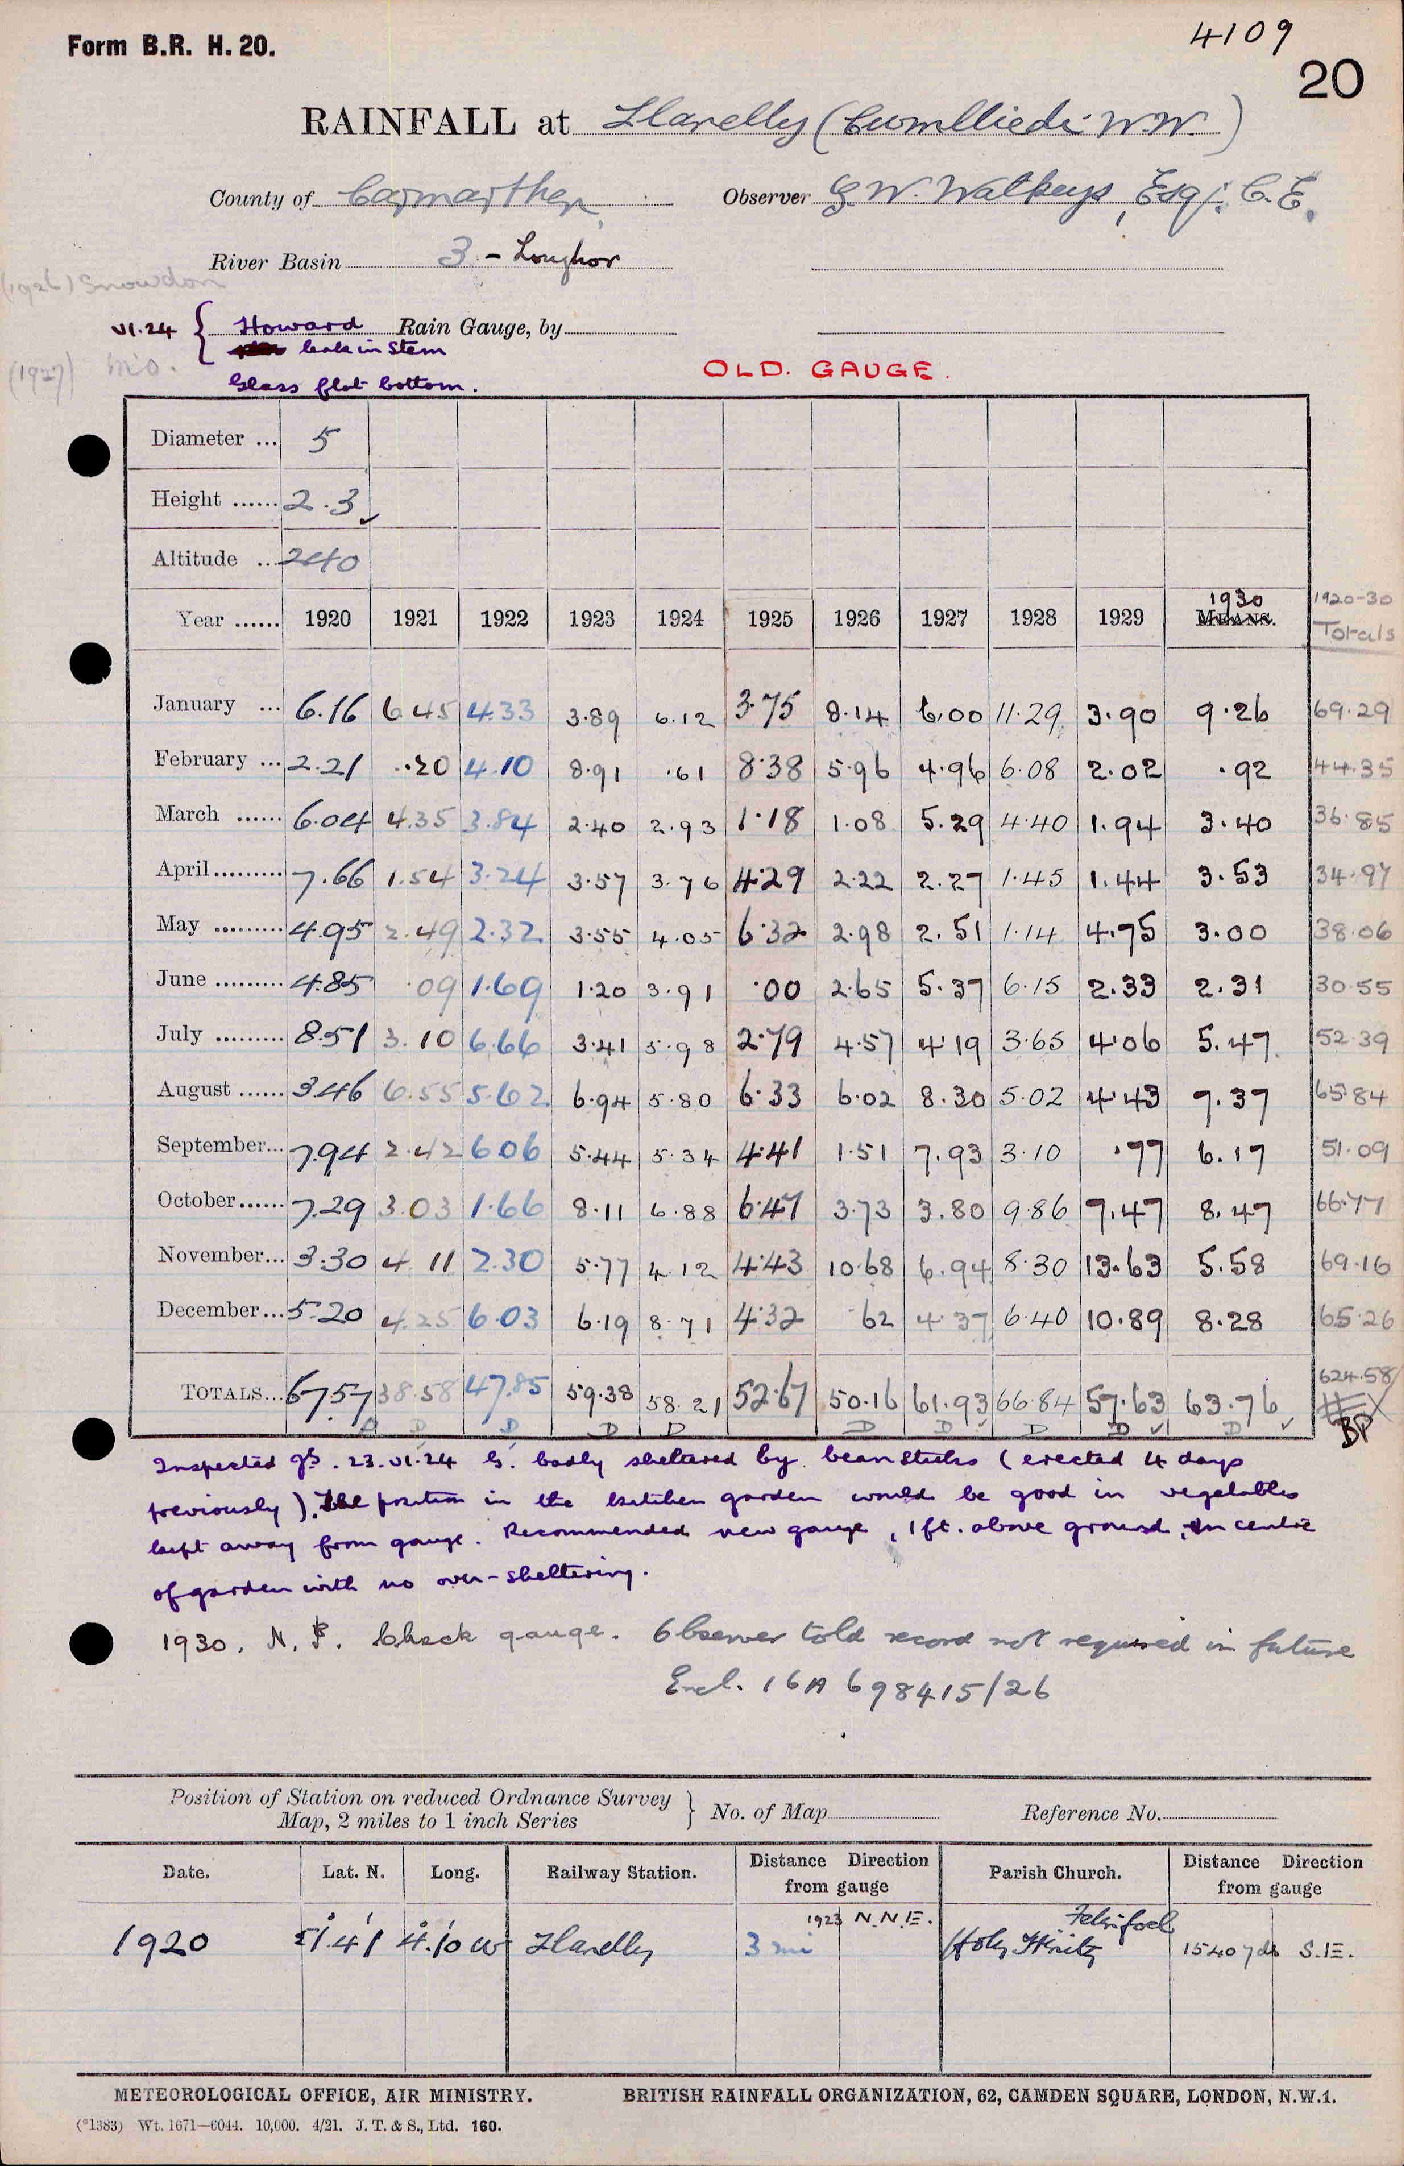 4109
Form B.R. H. 20.
20
RAINFALL at Llanelly (Cwmlliedi W.W.)
County of Carmarthen Observer G. W. Watkeys, Esq., C.E.
River Basin 3 - Loughor
(1926) Snowdon
VI.24 { Howard Rain Gauge, by
leak in stem
(1927) mo.
Glass flat bottom.
OLD. GAUGE.
Diameter ... 5
Height ...... 2.3
Altitude ... 240
Year ...... 1920 1921 1922 1923 1924 1925 1926 1927 1928 1929 1930 MEANS. 1920-30 Totals
January ... 6.16 6.45 4.33 3.89 6.12 3.75 8.14 6.00 11.29 3.90 9.26 69.29
February ... 2.21 .20 4.10 8.91 .61 8.38 5.96 4.96 6.08 2.02 .92 44.35
March ...... 6.04 4.35 3.84 2.40 2.93 1.18 1.08 5.29 4.40 1.94 3.40 36.85
April......... 7.66 1.54 3.24 3.57 3.76 4.29 2.22 2.27 1.45 1.44 3.53 34.97
May ......... 4.95 2.49 2.32 3.55 4.05 6.32 2.98 2.51 1.14 4.75 3.00 38.06
June ......... 4.85 .09 1.69 1.20 3.91 .00 2.65 5.37 6.15 2.33 2.31 30.55
July ......... 8.51 3.10 6.66 3.41 5.98 2.79 4.57 4.19 3.65 4.06 5.47 52.39
August ...... 3.46 6.55 5.62 6.94 5.80 6.33 6.02 8.30 5.02 4.43 7.37 65.84
September... 7.94 2.42 6.06 5.44 5.34 4.41 1.51 7.93 3.10 .77 6.17 51.09
October...... 7.29 3.03 1.66 8.11 6.88 6.47 3.73 3.80 9.86 7.47 8.47 66.77
November... 3.30 4.11 2.30 5.77 4.12 4.43 10.68 6.94 8.30 13.63 5.58 69.16
December... 5.20 4.25 6.03 6.19 8.71 4.32 .62 4.37 6.40 10.89 8.28 65.26
TOTALS... 67.57 38.58 47.85 59.38 58.21 52.67 50.16 61.93 66.84 57.63 63.76 624.58
D D D D D D D D D D BP
Inspected 23.VI.24 G. badly sheltered by bean sticks (erected 4 days
previously). The position in the kitchen garden would be good in vegetables
kept away from gauge. Recommended new gauge, 1 ft. above ground, in centre
of garden with no over-sheltering.
1930. N.P. Check gauge. Observer told record not required in future
Encl. 16A 698415/26
Position of Station on reduced Ordnance Survey
Map, 2 miles to 1 inch Series } No. of Map Reference No.
Date. Lat. N. Long. Railway Station. Distance Direction from gauge Parish Church. Distance Direction from gauge
1920 51°.41' 4°.10' W Llanelly 3 mi 1923 N.N.E. Holy Trinity Felinfoel 1540 yds S.E.
METEOROLOGICAL OFFICE, AIR MINISTRY. BRITISH RAINFALL ORGANIZATION, 62, CAMDEN SQUARE, LONDON, N.W.1.
(*1383) Wt. 1671—6044. 10,000. 4/21. J. T. & S., Ltd. 160.